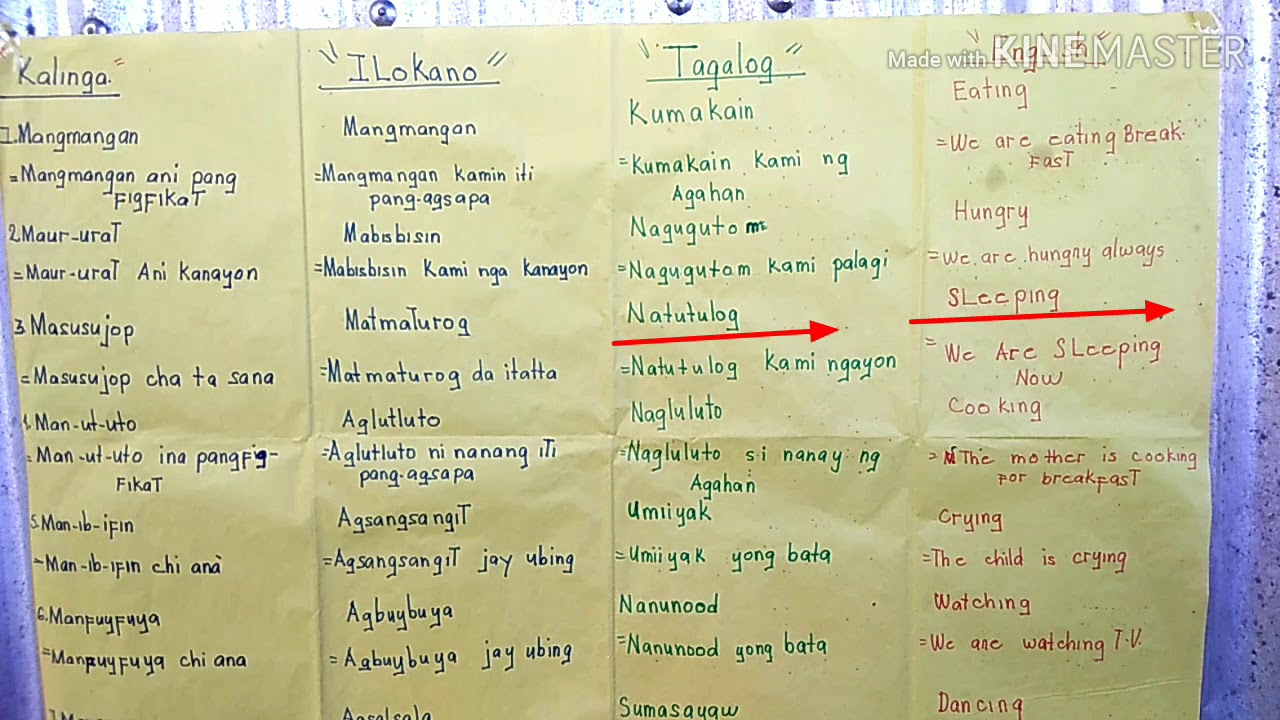 Made with KINEMASTER
Kalinga."
"ILokano"
"Tagalog"
"English"
1.Mangmangan
Mangmangan
Kumakain
Eating
=Mangmangan ani pang
FIGFIKAT
=Mangmangan kamin iti
pang-agsapa
=Kumakain kami ng
Agahan
=We are eating Break-
FasT
2.Maur-uraT
Mabisbisin
Nagugutom
Hungry
=Maur-uraT Ani kanayon
=Mabisbisin Kami nga kanayon
=Nagugutom kami palagi
=We are hungry always
3.Masusujop
MatmaTurog
Natutulog
SLeeping
=Masusujop cha ta sana
=Matmaturog da itatta
=Natutulog Kami ngayon
=We Are SLeeping
Now
4.Man-ut-uto
Aglutluto
Nagluluto
Cooking
=Man-ut-uto ina pangfig-
FikaT
=Aglutluto ni nanang iTi
pang-agsapa
=Nagluluto si nanay ng
Agahan
=The mother is cooking
For breakFasT
5.Man-ib-ifin
AgsangsangiT
Umiiyak
Crying
-Man-ib-ifin chi anà
=AgsangsangiT jay ubing
=Umiiyak yong bata
=The child is crying
6.Manfuyfuya
Agbuybuya
Nanunood
Watching
=Manfuyfuya chi ana
=Agbuybuya jay ubing
=Nanunood yong bata
=We are watching T.V.
Agsalsala
Sumasayaw
Dancing